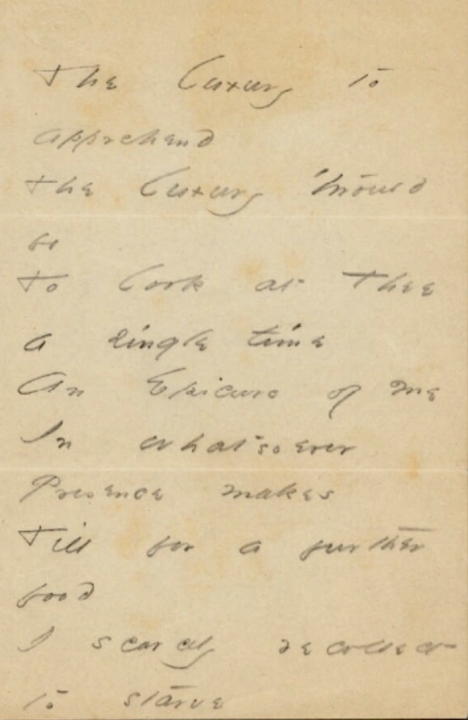 The Luxury to
apprehend
The Luxury 'twould
be
To look at Thee
a single time
An Epicure of Me
In whatsoever
Presence makes
Till for a further
food
I scarcely recollect
to starve